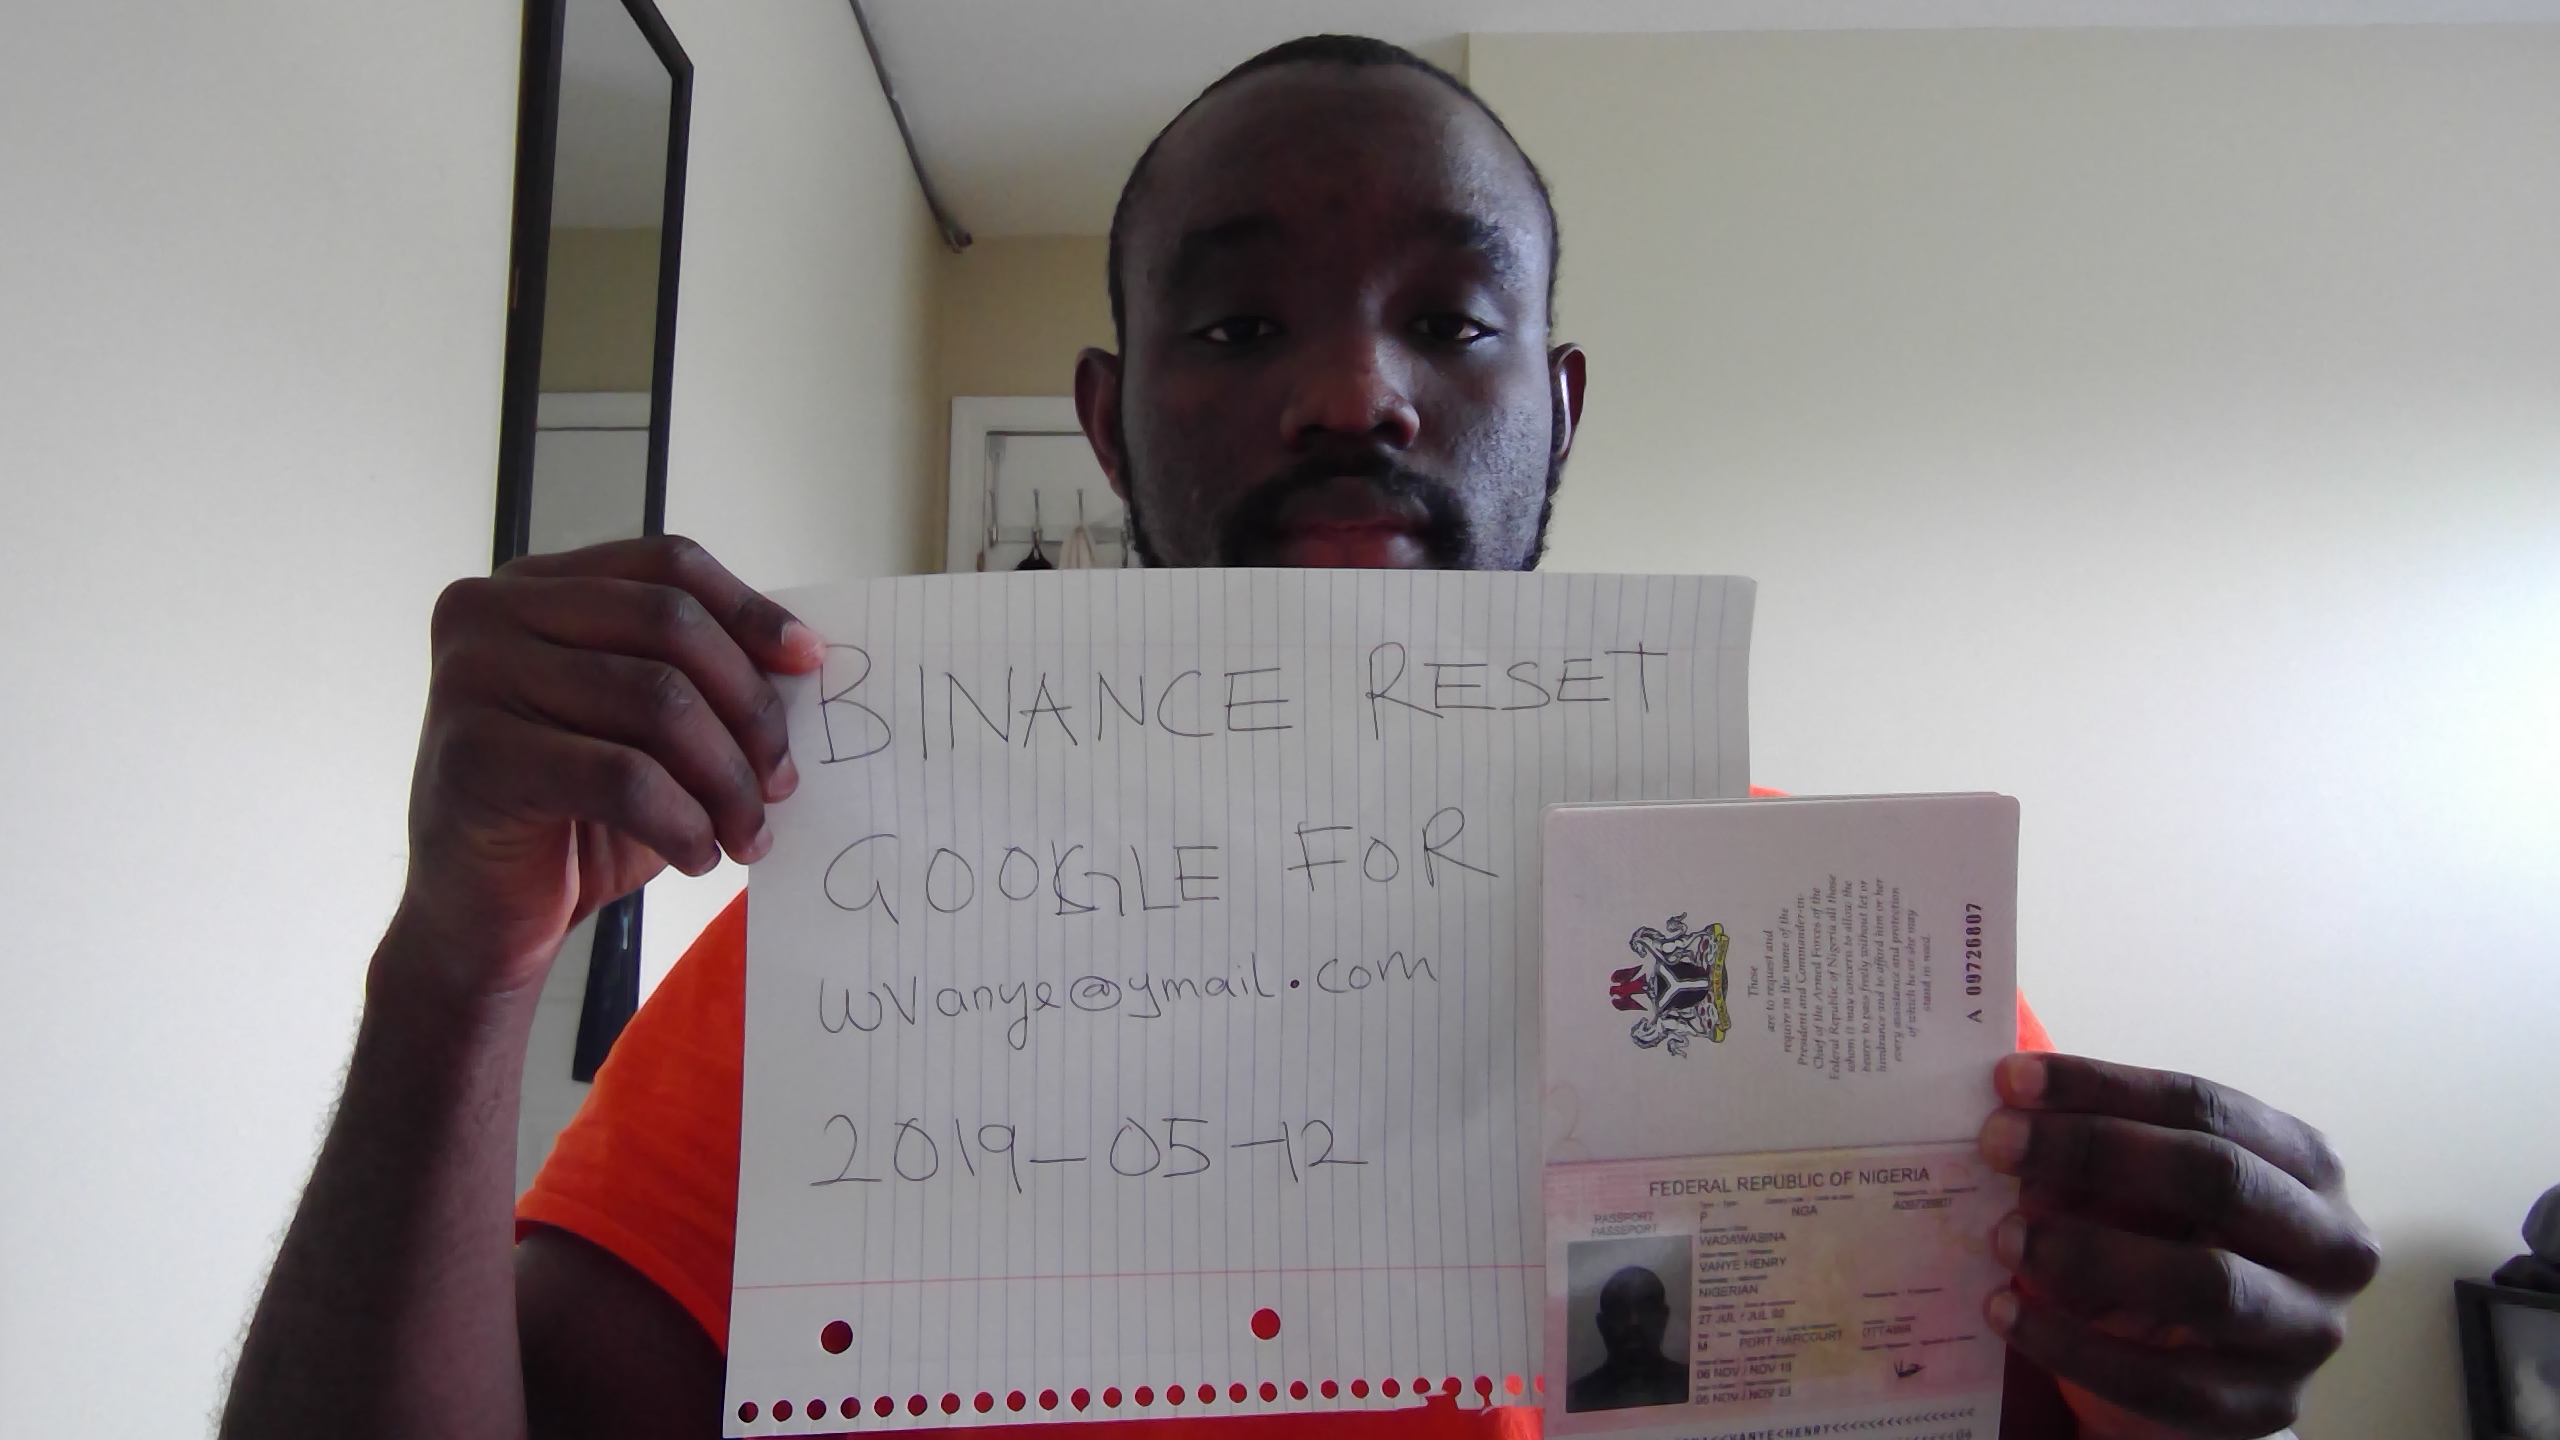 BINANCE RESET
GOOGLE FOR
wvanye@ymail.com
2019-05-12
These
are to request and
require in the name of the
President and Commander-in-
Chief of the Armed Forces of the
Federal Republic of Nigeria all those
whom it may concern to allow the
bearer to pass freely without let or
hindrance and to afford him or her
every assistance and protection
of which he or she may
stand in need.
A 09726807
FEDERAL REPUBLIC OF NIGERIA
PASSPORT
PASSEPORT
P NGA A09726807
WADAWASINA
VANYE HENRY
NIGERIAN
27 JUL / JUL
M PORT HARCOURT OTTAWA
06 NOV / NOV 18
05 NOV / NOV 23
<<VANYE<HENRY<<<<<<<<<<<<<<<<<